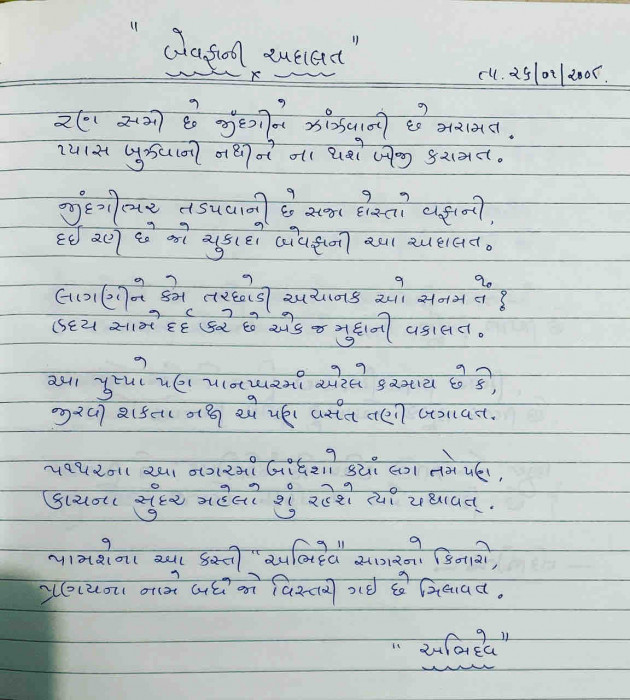 "બેવફાની અદાલત"
તા. ૨૬/૦૨/૨૦૦૬.
રણ સમી છે જીંદગીને ઝાંઝવાની છે મરામત.
પ્યાસ બુઝવાની નથીને ના થશે બીજી કરામત.
જીંદગીભર તડપવાની છે સજા દોસ્તો વફાની,
દઈ રહી છે જો ચુકાદો બેવફાની આ અદાલત.
લાગણીને કેમ તરછોડી અચાનક ઓ સનમ તેં ?
હ્રદય સામે દર્દ કરે છે એક જ મુદ્દાની વકાલત.
આ પુષ્પો પણ પાનખરમાં એટલે કરમાય છે કે,
જીરવી શકતા નથી એ પણ વસંત તણી બગાવત.
પથ્થરના આ નગરમાં બાંધશો ક્યાં લગ તમે પણ,
કાચના સુંદર મહેલો શું રહેશે ત્યાં યથાવત્.
પામશેના આ કસ્તી "અભિદેવ" સાગરનો કિનારો,
પ્રણયના નામે બધે જો વિસ્તરી ગઈ છે મિલાવત.
"અભિદેવ"